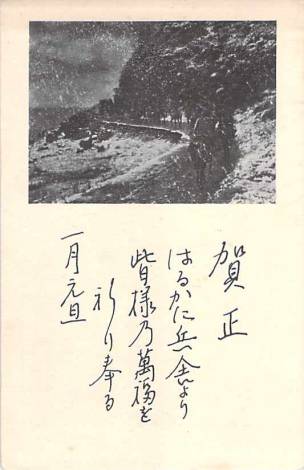 賀正
はるかに兵舎より
皆様乃萬福を
祈り奉る
一月元旦